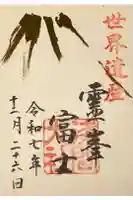 世界遺産
靈峯
富士
令和七年
十二月二十六日